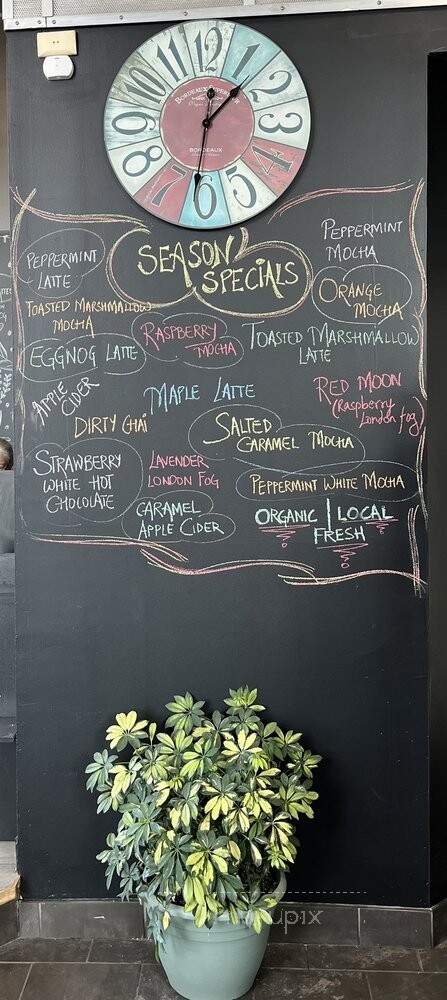 12
1
2
3
4
5
6
7
8
9
10
11
BORDEAUX SUPERIOR
BORDEAUX
SEASON
SPECIALS
PEPPERMINT
LATTE
PEPPERMINT
MOCHA
TOASTED MARSHMALLOW
MOCHA
ORANGE
MOCHA
RASPBERRY
MOCHA
TOASTED MARSHMALLOW
LATTE
EGGNOG LATTE
APPLE
CIDER
MAPLE LATTE
RED MOON
(Raspberry
London fog)
DIRTY Chai
SALTED
CARAMEL MOCHA
STRAWBERRY
WHITE HOT
CHOCOLATE
LAVENDER
LONDON FOG
PEPPERMINT WHITE MOCHA
CARAMEL
APPLE CIDER
ORGANIC | LOCAL
FRESH